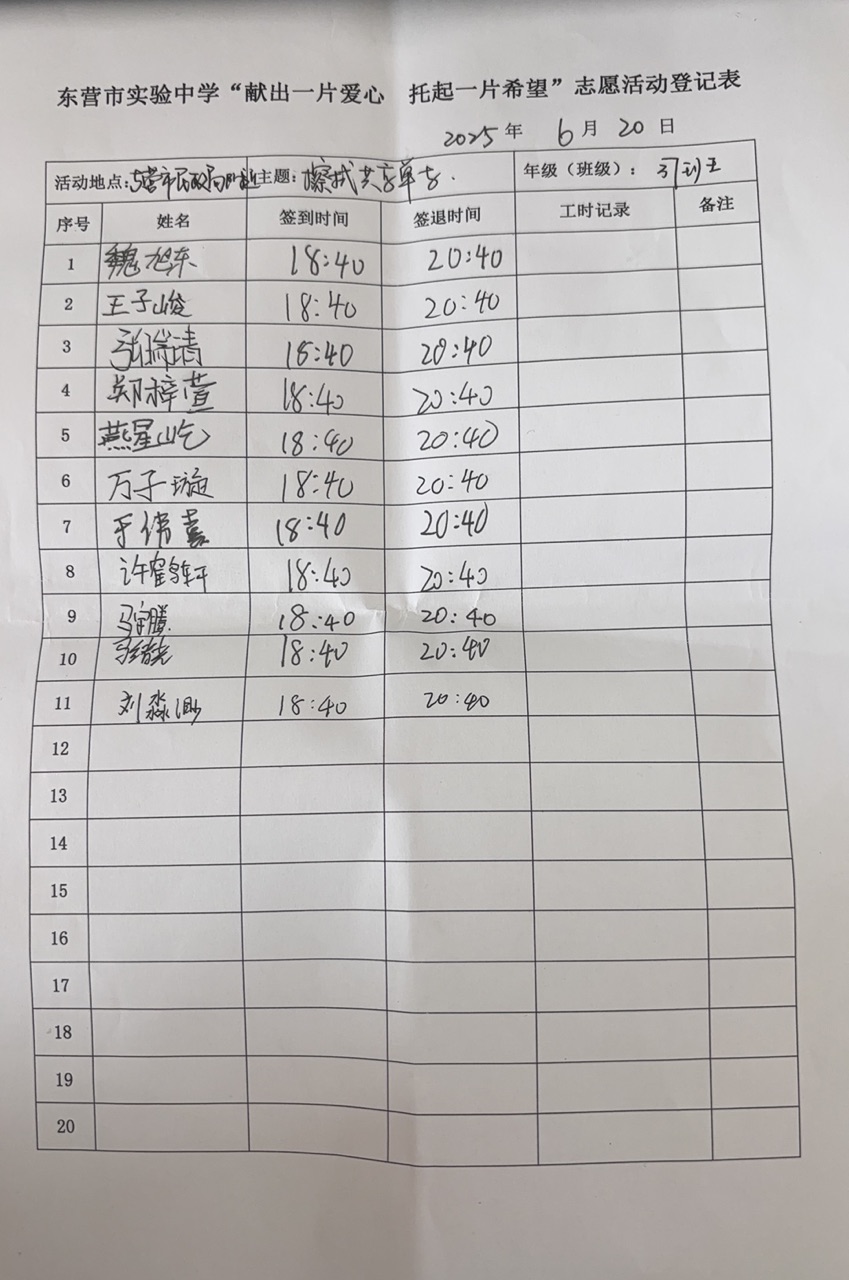 东营市实验中学“献出一片爱心 托起一片希望”志愿活动登记表
2025年 6月20日
活动地点: 东营市民政局附近 主题: 擦拭共享单车. 年级（班级）:
序号 姓名 签到时间 签退时间 工时记录 备注
1 魏旭东 18:40 20:40
2 王子峻 18:40 20:40
3 张瑞清 18:40 20:40
4 郑梓萱 18:40 20:40
5 燕星屹 18:40 20:40
6 万子璇 18:40 20:40
7 于伟嘉 18:40 20:40
8 许鹤轩 18:40 20:40
9 马宇腾 18:40 20:40
10 18:40 20:40
11 刘淼渺 18:40 20:40
12
13
14
15
16
17
18
19
20